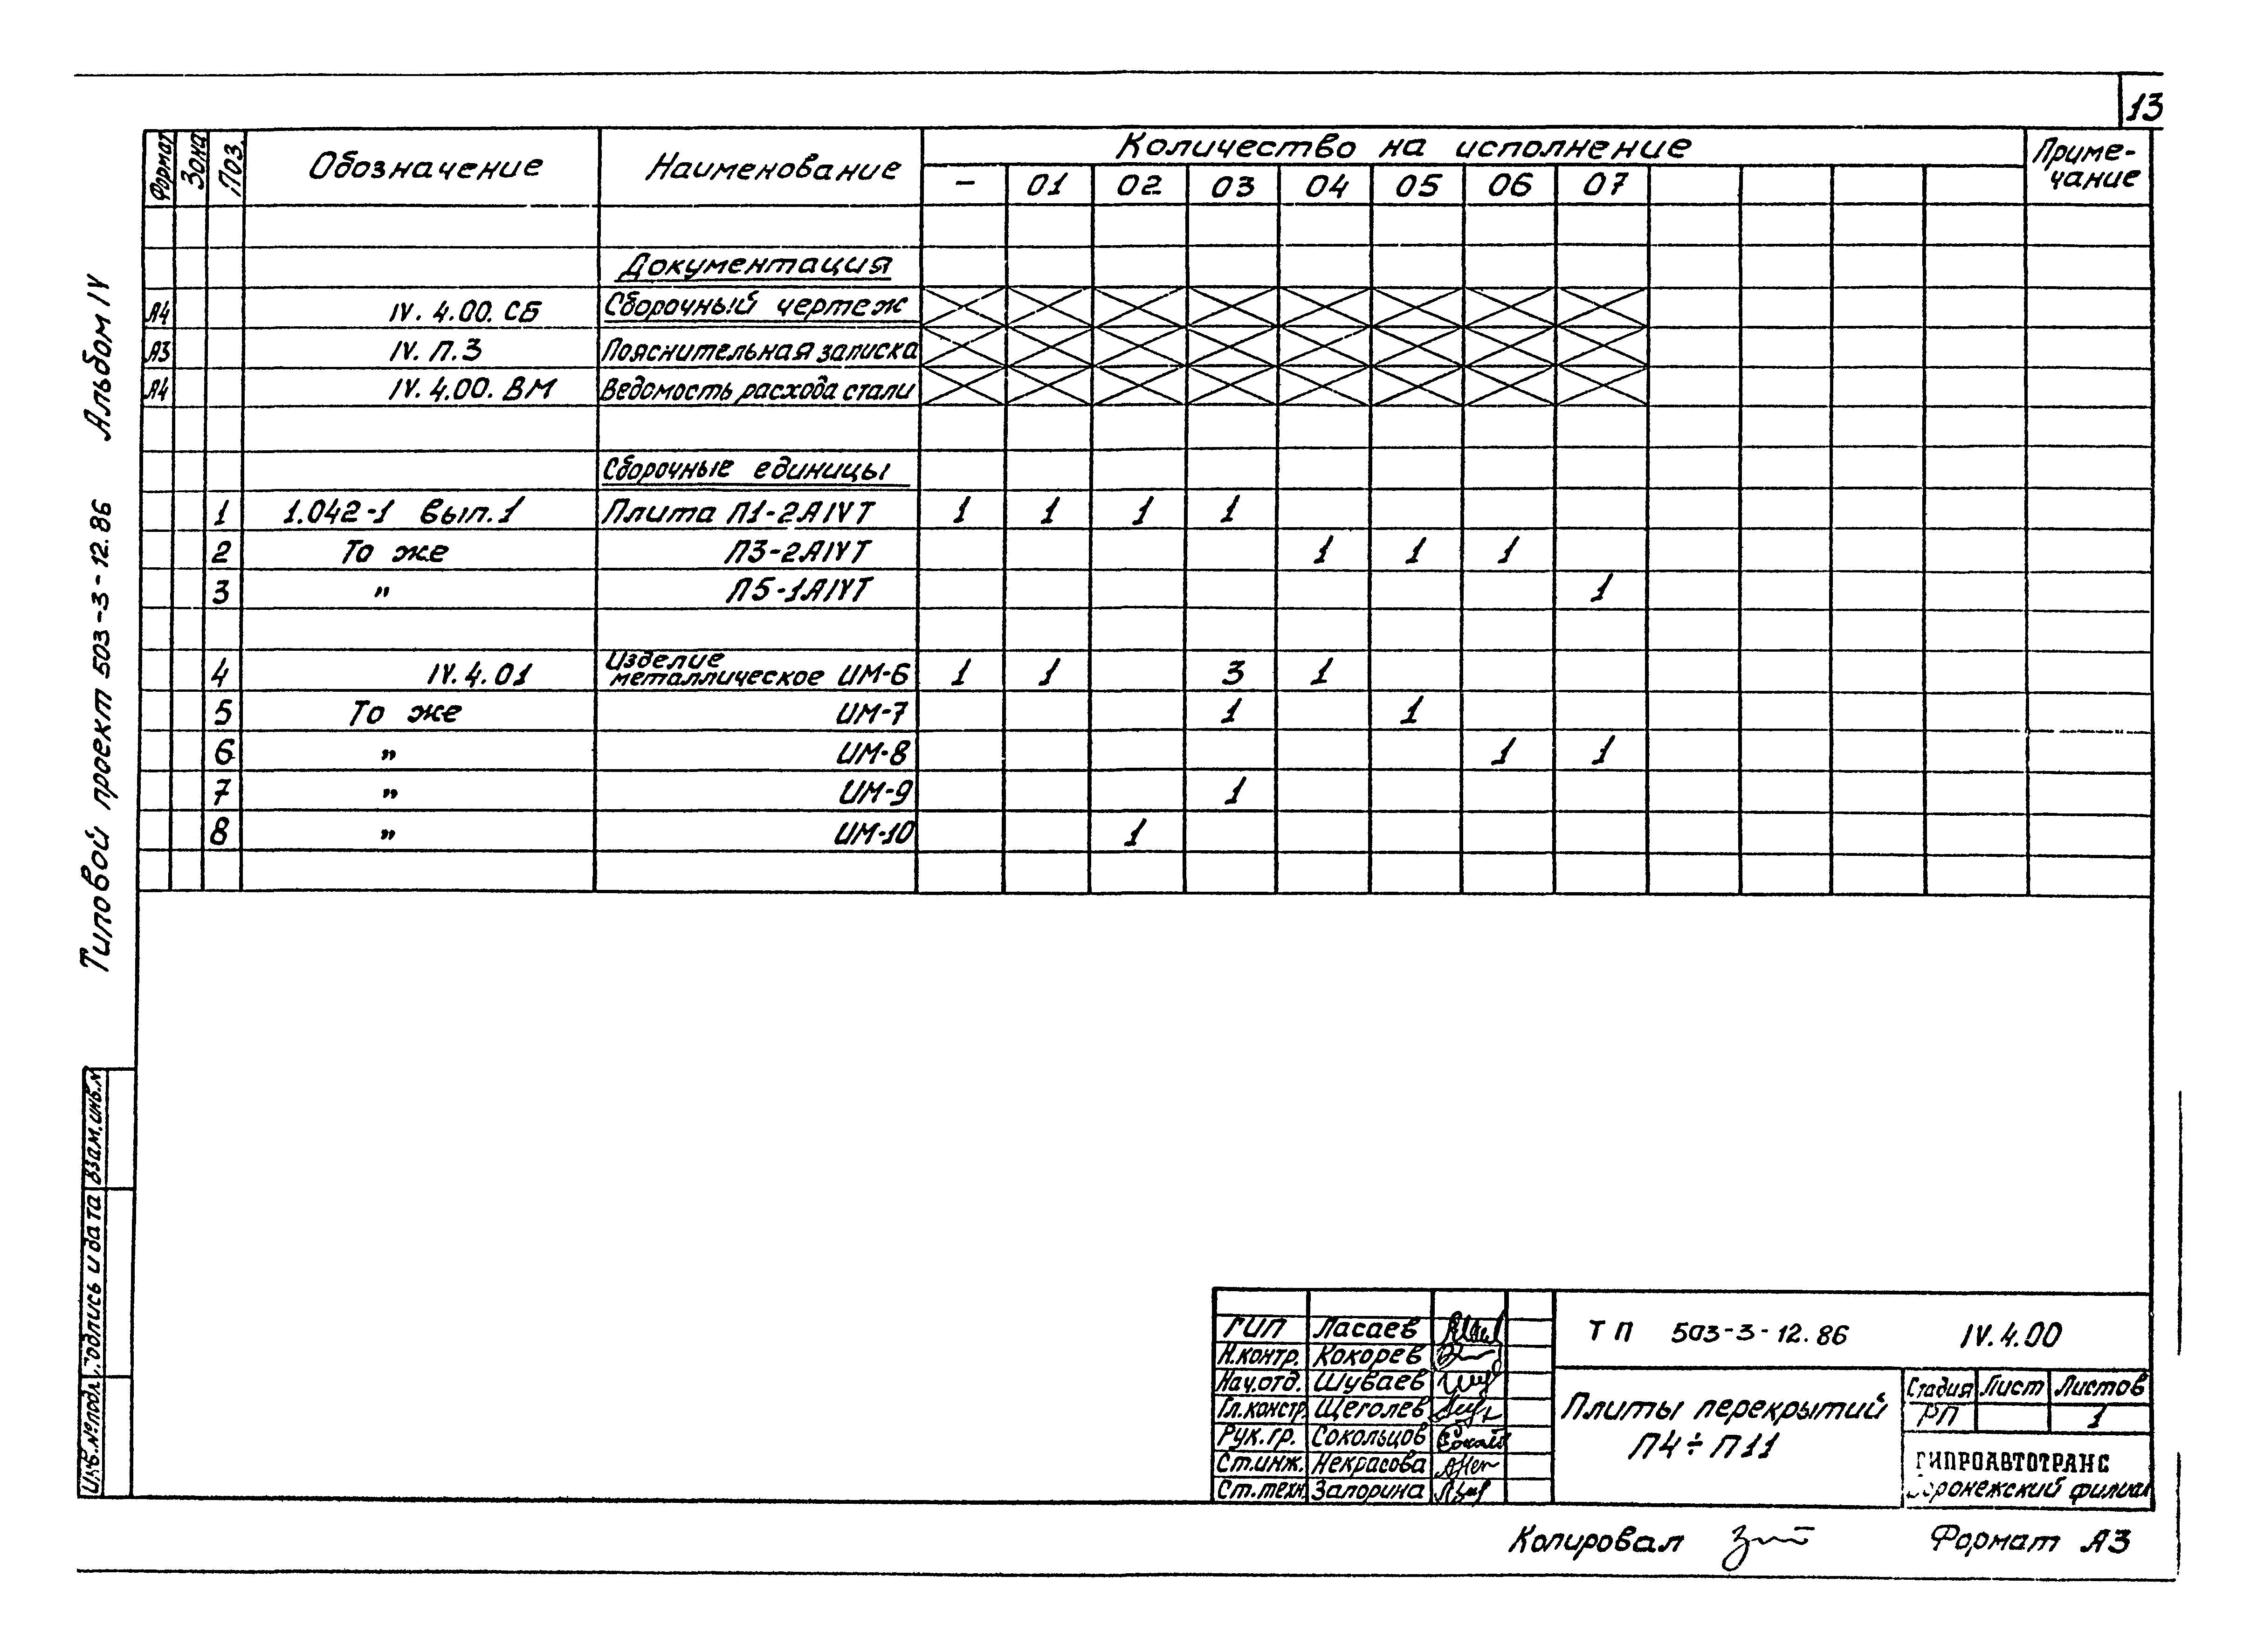 13
Формат Зона Поз. Обозначение Наименование Количество на исполнение Приме-
чание
– 01 02 03 04 05 06 07
Документация
А4 IV. 4.00. СБ Сборочный чертеж
А3 IV. П.З Пояснительная записка
А4 IV. 4.00. ВМ Ведомость расхода стали
Сборочные единицы
1 1.042-1 вып.1 Плита П1-2АIVТ 1 1 1 1
2 То же П3-2АIVТ 1 1 1
3 " П5-1АIVТ 1
4 IV.4.01 Изделие
металлическое ИМ-6 1 1 3 1
5 То же ИМ-7 1 1
6 " ИМ-8 1 1
7 " ИМ-9 1
8 " ИМ-10 1
Типовой проект 503-3-12.86 Альбом IV
Инв.№подл. Подпись и дата Взам.инв.№
ГИП Ласаев
Н.контр. Кокорев
Нач.отд. Шуваев
Гл.констр. Щеголев
Рук.гр. Сокольцов
Ст.инж. Некрасова
Ст.техн. Запорина
ТП 503-3-12.86 IV.4.00
Плиты перекрытий
П4÷П11
Стадия Лист Листов
РП 1
ГИПРОАВТОТРАНС
Воронежский филиал
Копировал Формат А3